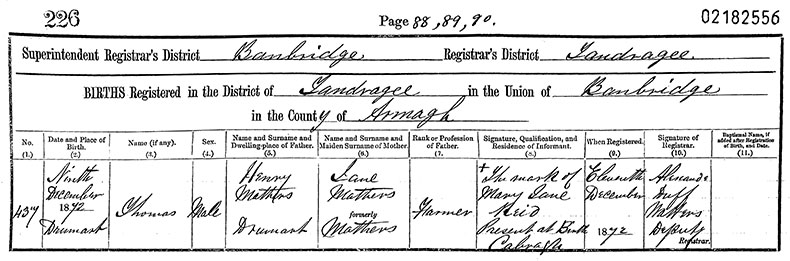 226
Page 88, 89, 90.
02182556
Superintendent Registrar's District Banbridge Registrar's District Tandragee
BIRTHS Registered in the District of Tandragee in the Union of Banbridge
in the County of Armagh
No. (1.) Date and Place of Birth. (2.) Name (if any). (3.) Sex. (4.) Name and Surname and Dwelling-place of Father. (5.) Name and Surname and Maiden Surname of Mother. (6.) Rank or Profession of Father. (7.) Signature, Qualification, and Residence of Informant. (8.) When Registered. (9.) Signature of Registrar. (10.) Baptismal Name, if added after Registration of Birth, and Date. (11.)
437
Ninth
December
1872
Drumart
Thomas
Male
Henry
Mathers
Drumart
Jane
Mathers
formerly
Mathers
Farmer
+ The mark of
Mary Jane
Reid
Present at Birth
Cabragh
Eleventh
December
1872
Duff
Deputy
Registrar.